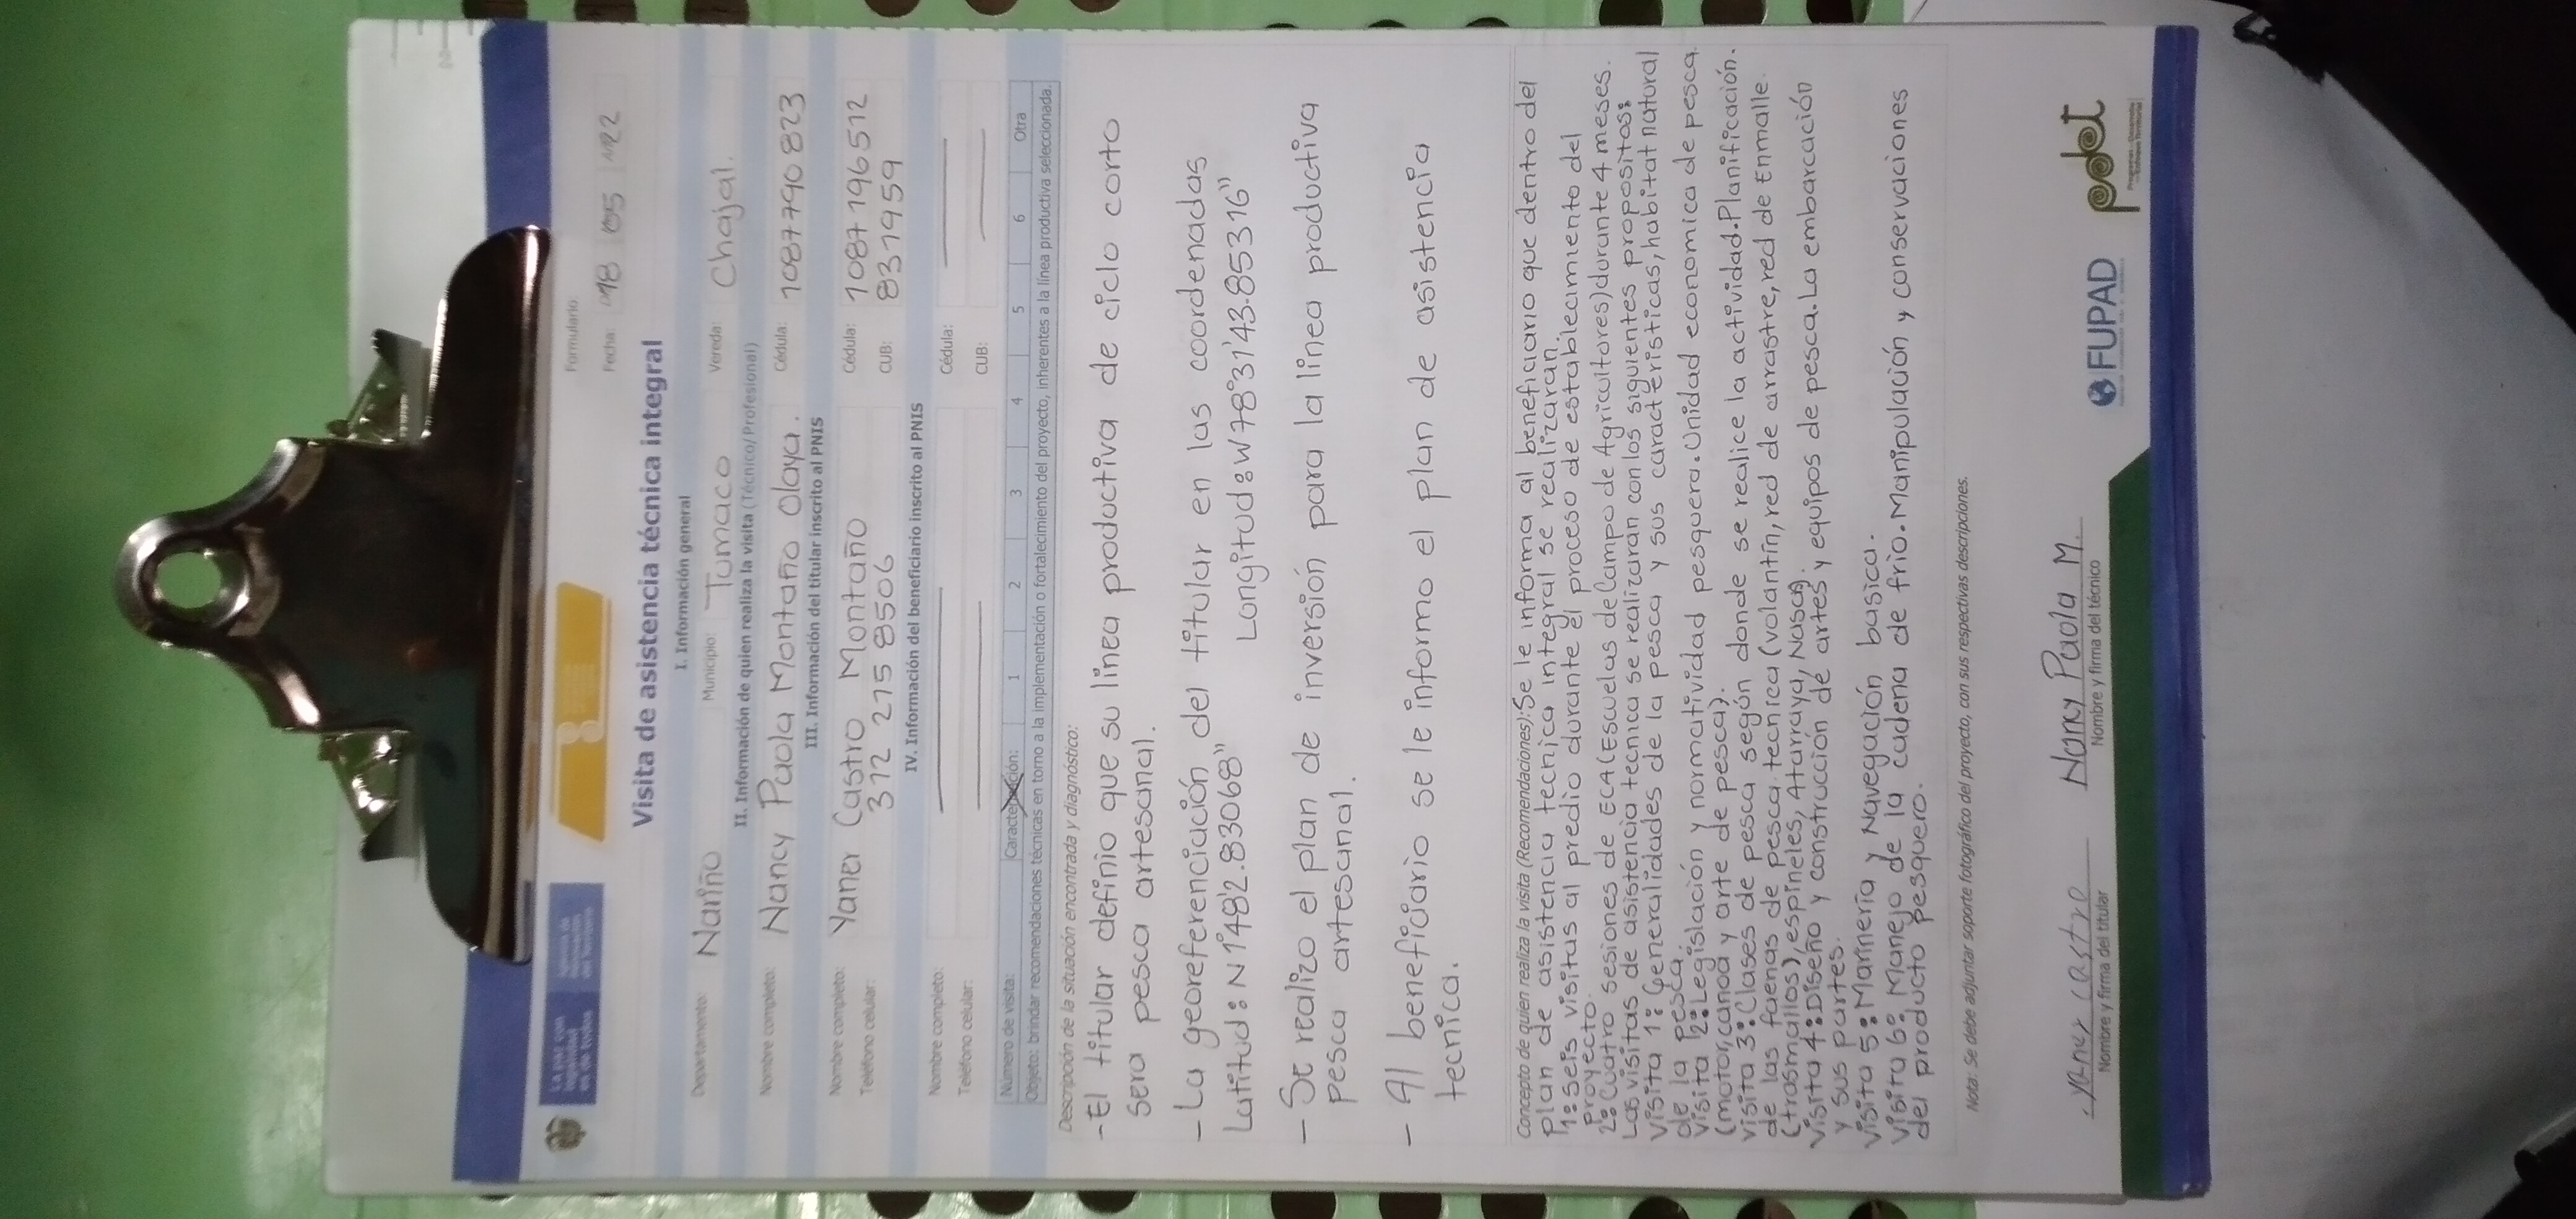 La paz con legalidad es de todos
Formulario
Fecha: 18 05 22
Visita de asistencia técnica integral
I. Información general
Departamento: Nariño Municipio: Tumaco Vereda: Chajal.
II. Información de quien realiza la visita (Técnico/Profesional)
Nombre completo: Nancy Paola Montaño Olaya. Cédula: 1087790823
III. Información del titular inscrito al PNIS
Nombre completo: Yaner Castro Montaño Cédula: 1087196512
Teléfono celular: 312 215 8506 CUB: 831959
IV. Información del beneficiario inscrito al PNIS
Nombre completo: Cédula:
Teléfono celular: CUB:
Número de visita: 1 2 3 4 5 6 Otra
Objeto: brindar recomendaciones técnicas en torno a la implementación o fortalecimiento del proyecto, inherentes a la línea productiva seleccionada.
Descripción de la situación encontrada y diagnóstico:
- El titular definio que su linea productiva de ciclo corto
sera pesca artesanal.
- La georeferenciación del titular en las coordenadas
Latitud: N1°48'2.83068" Longitud: W78°31'43.85316"
- Se realizo el plan de inversión para la linea productiva
pesca artesanal.
- Al beneficiario se le informo el plan de asistencia
tecnica.
Concepto de quien realiza la visita (Recomendaciones): Se le informa al beneficiario que dentro del
plan de asistencia tecnica integral se realizaran.
1: Seis visitas al predio durante el proceso de establecimiento del
proyecto.
2: Cuatro sesiones de ECA (Escuelas de Campo de Agricultores) durante 4 meses.
Las visitas de asistencia tecnica se realizaran con los siguientes propositos:
Visita 1: Generalidades de la pesca y sus caracteristicas, habitat natural
de la pesca.
Visita 2: Legislación y normatividad pesquera. Unidad economica de pesca
(motor, canoa y arte de pesca).
Visita 3: Clases de pesca según donde se realice la actividad. Planificación.
de las faenas de pesca. tecnica (volantín, red de arrastre, red de Enmalle.
(trasmallos), espineles, Atarraya, Nasas).
Visita 4: Diseño y construcción de artes y equipos de pesca. La embarcación
y sus partes.
Visita 5: Marinería y Navegación basica.
Visita 6: Manejo de la cadena de frio. Manipulación y conservaciones
del producto pesquero.
Nota: Se debe adjuntar soporte fotográfico del proyecto, con sus respectivas descripciones.
Yaner Castro Nancy Paola M.
Nombre y firma del titular Nombre y firma del técnico
FUPAD
pdet